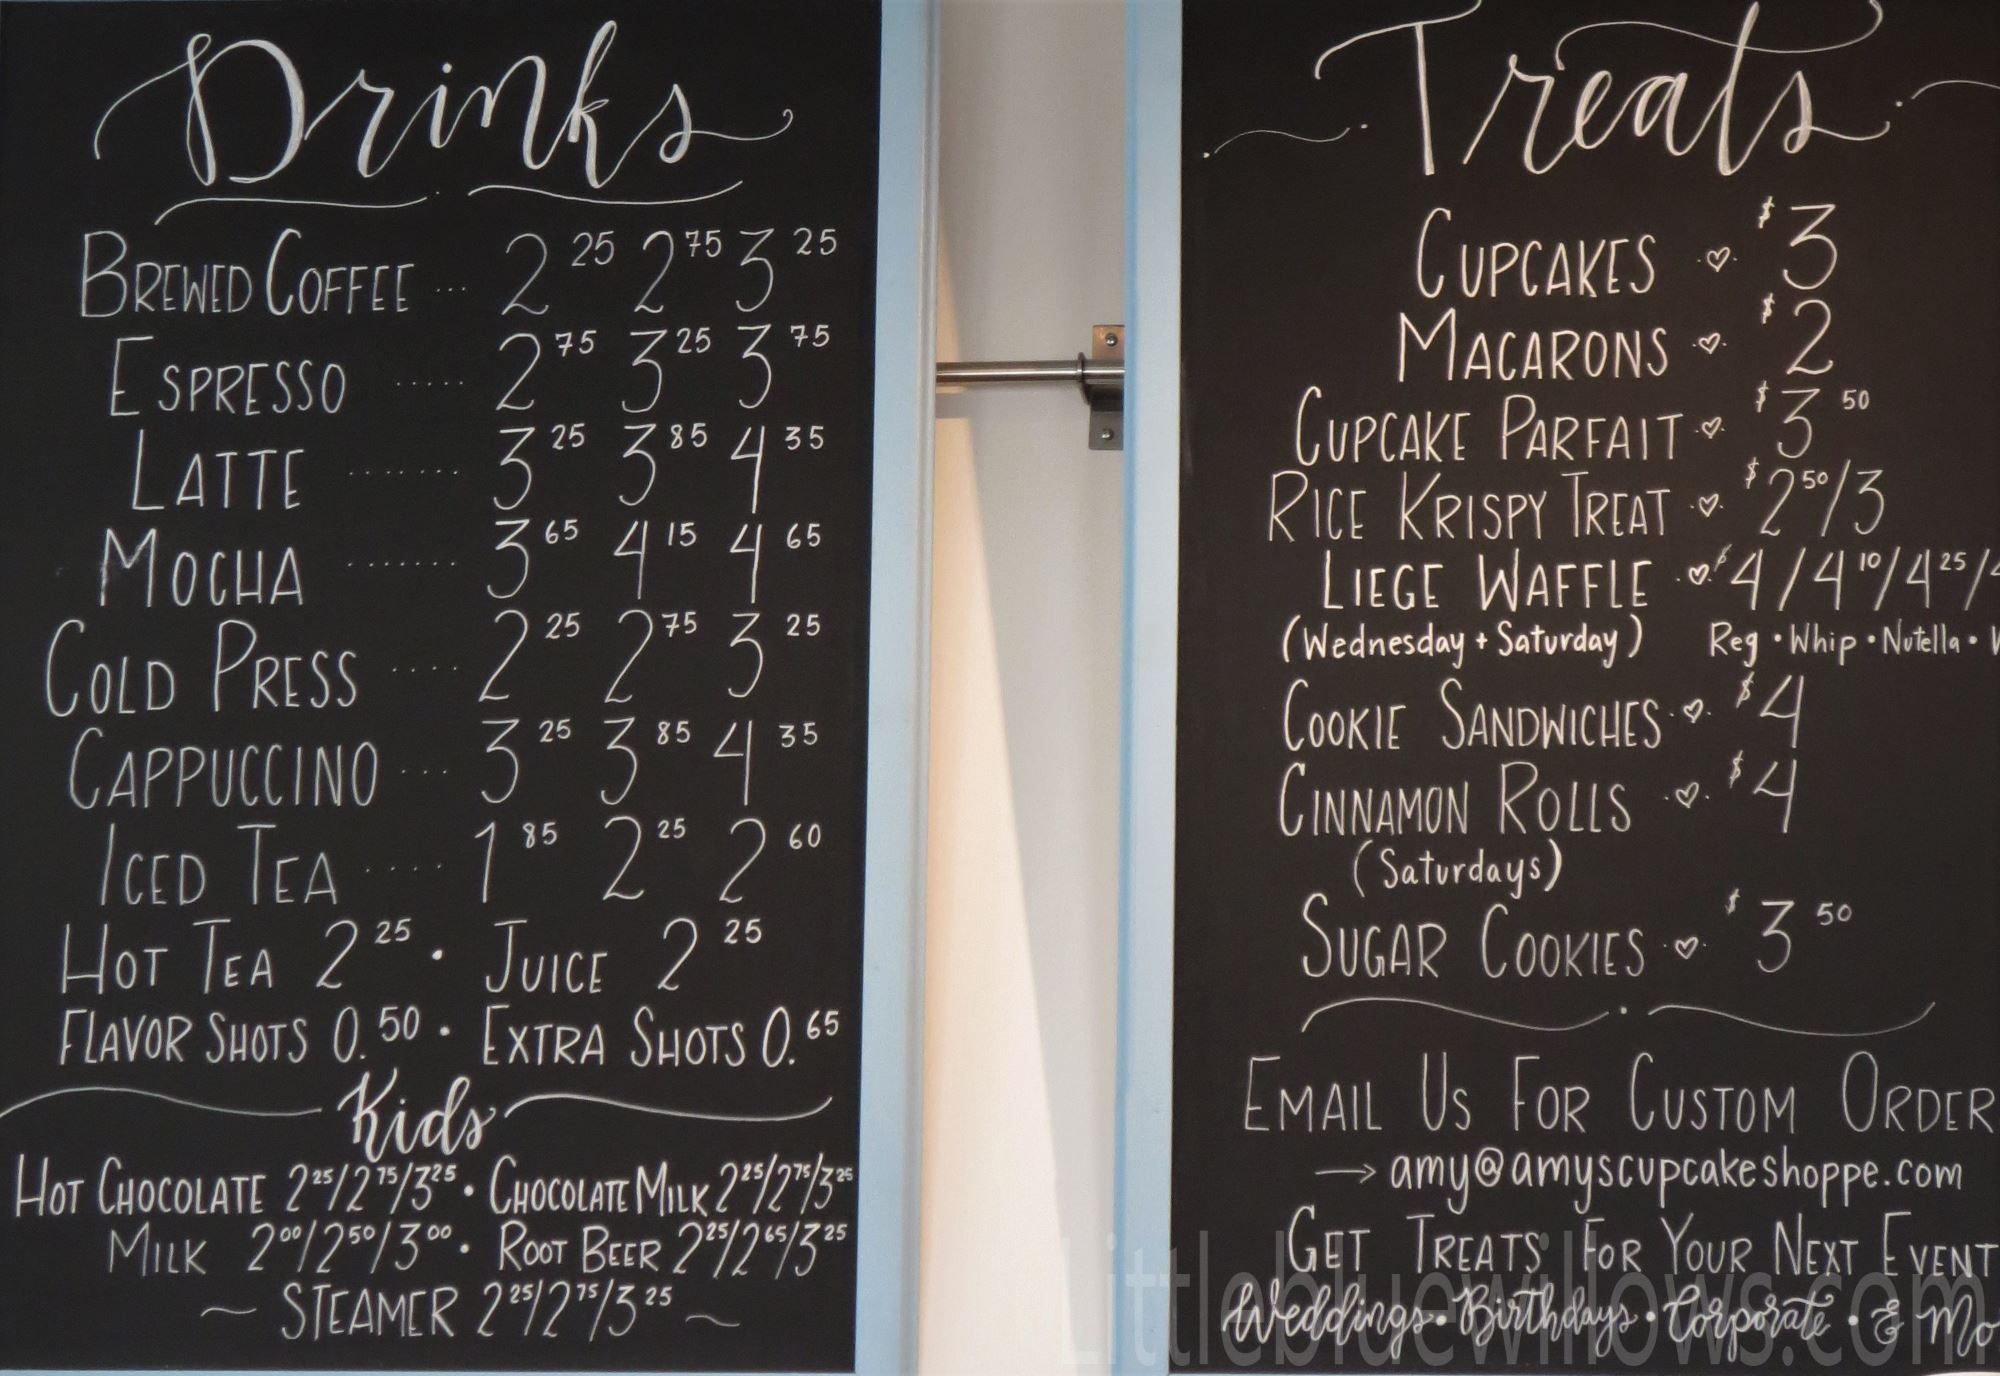 Drinks
BREWED COFFEE ... 2 25 2 75 3 25
ESPRESSO ..... 2 75 3 25 3 75
LATTE ....... 3 25 3 85 4 35
MOCHA ....... 3 65 4 15 4 65
COLD PRESS .... 2 25 2 75 3 25
CAPPUCCINO ... 3 25 3 85 4 35
ICED TEA .... 1 85 2 25 2 60
HOT TEA 2 25 • JUICE 2 25
FLAVOR SHOTS 0.50 • EXTRA SHOTS 0.65
Kids
HOT CHOCOLATE 2 25/2 75/3 25 • CHOCOLATE MILK 2 25/2 75/3 25
MILK 2 00/2 50/3 00 • ROOT BEER 2 25/2 65/3 25
~ STEAMER 2 25/2 75/3 25 ~
Treats
CUPCAKES ·♡· $3
MACARONS ·♡· $2
CUPCAKE PARFAIT ·♡· $3 50
RICE KRISPY TREAT ·♡· $2 50/3
LIEGE WAFFLE ·♡· $4/4 10/4 25/
(Wednesday + Saturday) Reg • Whip • Nutella •
COOKIE SANDWICHES ·♡· $4
CINNAMON ROLLS ·♡· $4
(Saturdays)
SUGAR COOKIES ·♡· $3 50
EMAIL US FOR CUSTOM ORDER
→ amy@amyscupcakeshoppe.com
GET TREATS FOR YOUR NEXT EVENT
Weddings • Birthdays • Corporate • & Mo
Littlebluewillows.com